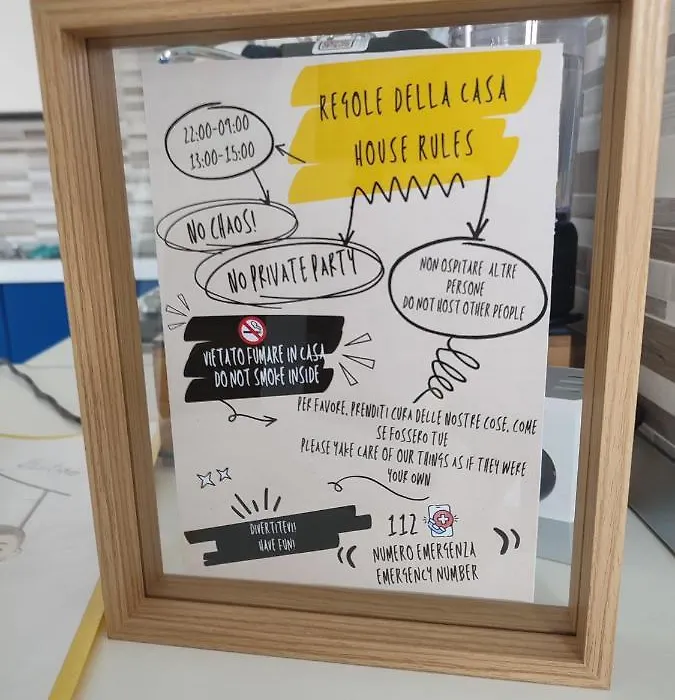 REGOLE DELLA CASA
HOUSE RULES
22:00-09:00
13:00-15:00
NO CHAOS!
NO PRIVATE PARTY
NON OSPITARE ALTRE
PERSONE
DO NOT HOST OTHER PEOPLE
VIETATO FUMARE IN CASA
DO NOT SMOKE INSIDE
PER FAVORE, PRENDITI CURA DELLE NOSTRE COSE, COME
SE FOSSERO TUE
PLEASE TAKE CARE OF OUR THINGS AS IF THEY WERE
YOUR OWN
DIVERTITEVI!
HAVE FUN!
112
NUMERO EMERGENZA
EMERGENCY NUMBER